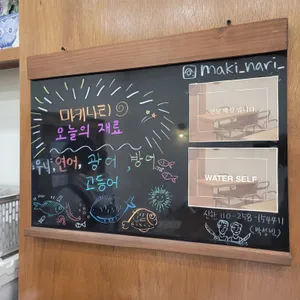 maki_nari_
마키나리
오늘의 재료
연어, 광어, 방어
고등어
WATER SELF
신한 110-258-154411